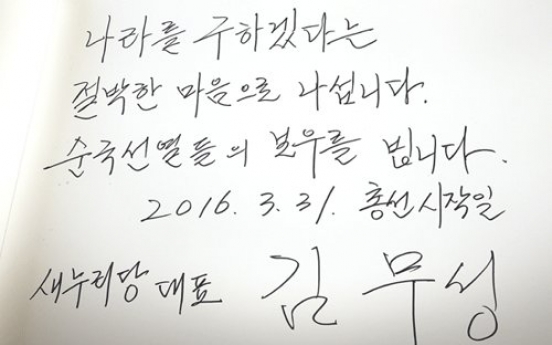 나라를 구하겠다는
절박한 마음으로 나섭니다.
순국선열들의 보우를 빕니다.
2016. 3. 31. 총선시작일
새누리당 대표 김무성